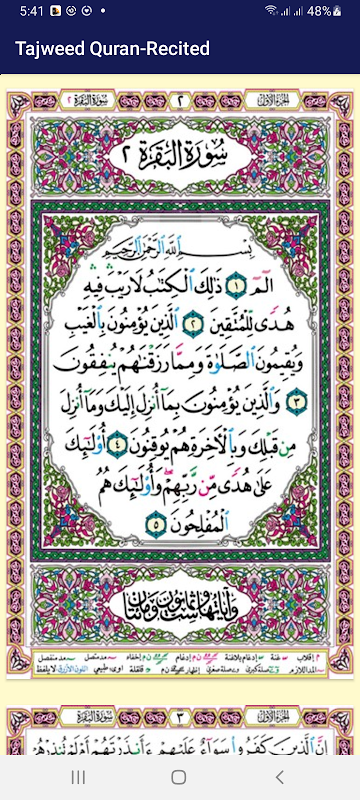 5:41
48%
Tajweed Quran-Recited
سورة البقرة ٢
٢
الجزء الأول
سُورَةُ البَقَرَة ٢
بِسْمِ اللَّهِ الرَّحْمَٰنِ الرَّحِيمِ
الٓمٓ ١ ذَٰلِكَ الْكِتَٰبُ لَا رَيْبَ فِيهِ
هُدًى لِّلْمُتَّقِينَ ٢ الَّذِينَ يُؤْمِنُونَ بِالْغَيْبِ
وَيُقِيمُونَ الصَّلَوٰةَ وَمِمَّا رَزَقْنَٰهُمْ يُنفِقُونَ
٣ وَالَّذِينَ يُؤْمِنُونَ بِمَآ أُنزِلَ إِلَيْكَ وَمَآ أُنزِلَ
مِن قَبْلِكَ وَبِالْأٓخِرَةِ هُمْ يُوقِنُونَ ٤ أُوْلَٰٓئِكَ
عَلَىٰ هُدًى مِّن رَّبِّهِمْ وَأُوْلَٰٓئِكَ هُمُ
الْمُفْلِحُونَ ٥
وآياتها ست وثمانون ومائتان
سورة البقرة
٣
الجزء الأول
إِنَّ الَّذِينَ كَفَرُوا سَوَآءٌ عَلَيْهِمْ ءَأَنذَرْتَهُمْ أَمْ لَمْ تُنذِرْهُمْ